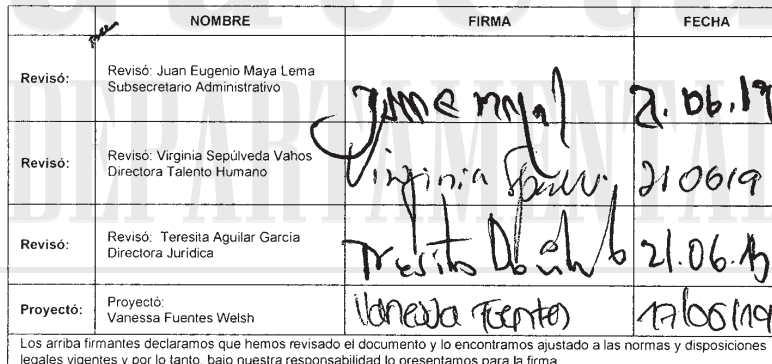 NOMBRE FIRMA FECHA
Revisó: Revisó: Juan Eugenio Maya Lema
Subsecretario Administrativo
21.06.19
Revisó: Revisó: Virginia Sepúlveda Vahos
Directora Talento Humano
Virginia 210619
Revisó: Revisó: Teresita Aguilar García
Directora Jurídica
Teresita 21.06.19
Proyectó: Proyectó:
Vanessa Fuentes Welsh
Vanessa Fuentes 17/06/19
Los arriba firmantes declaramos que hemos revisado el documento y lo encontramos ajustado a las normas y disposiciones
legales vigentes y por lo tanto, bajo nuestra responsabilidad lo presentamos para la firma.
DEPARTAMENTAL